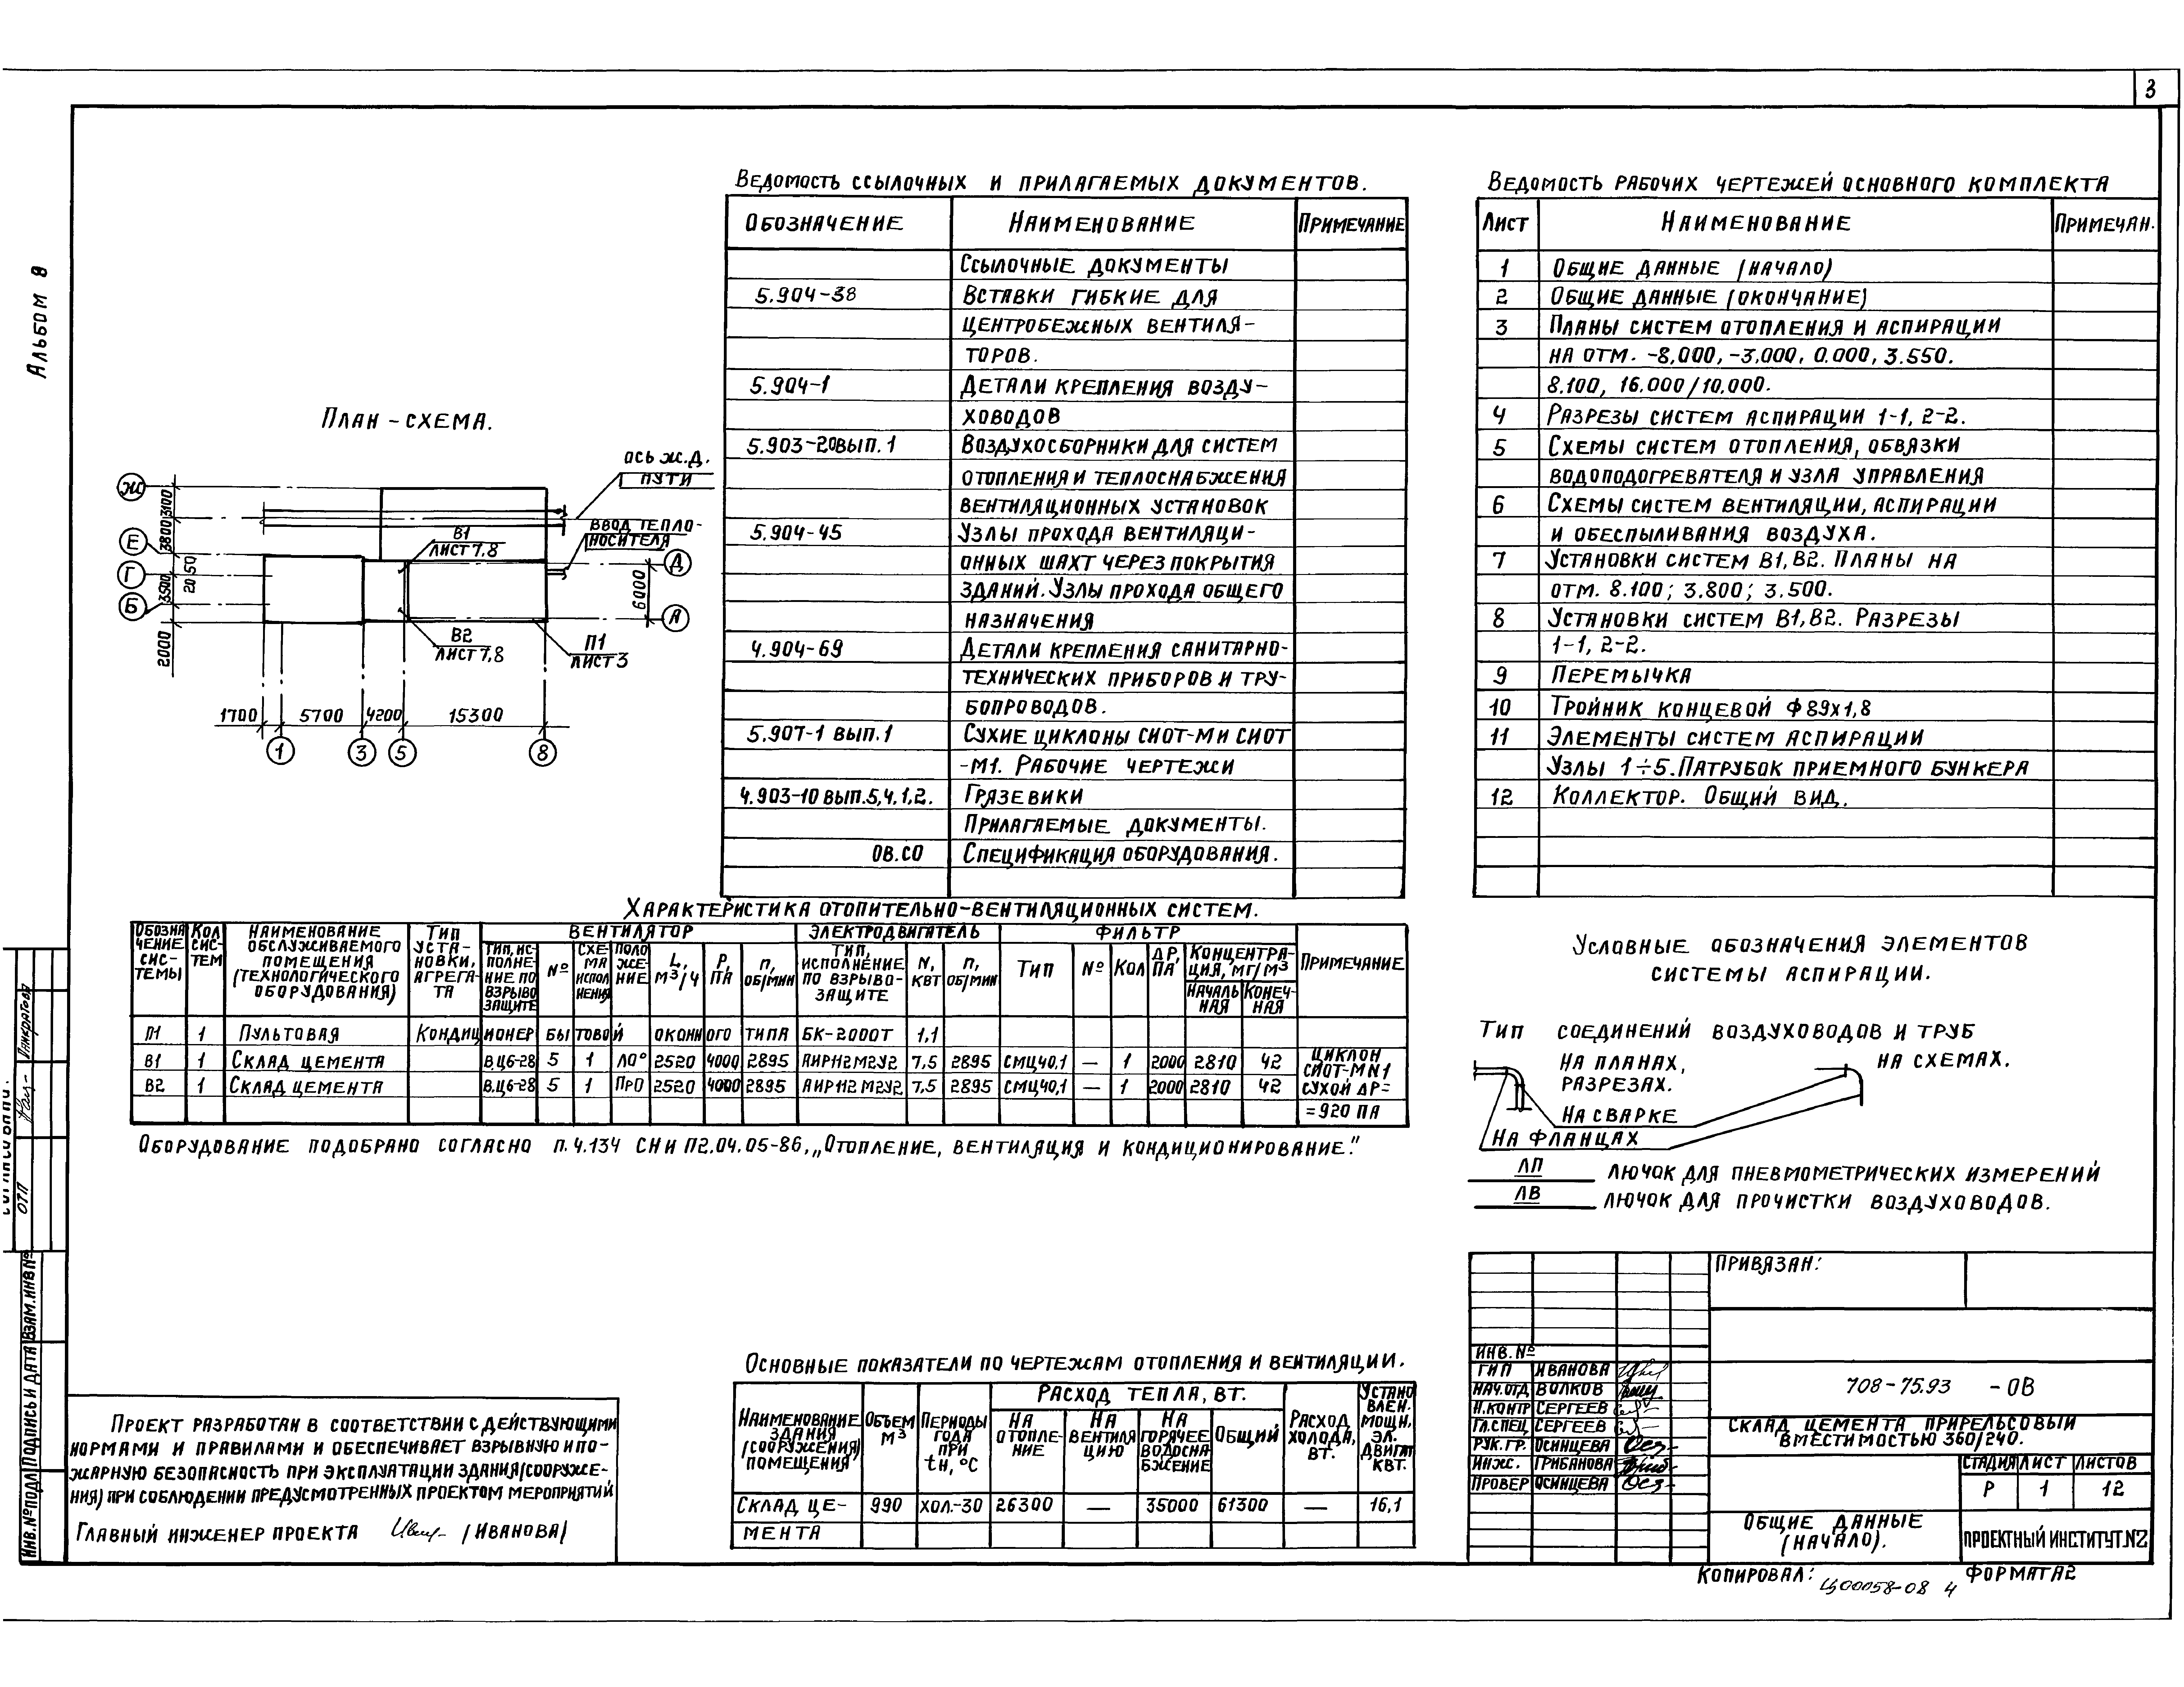 3
Альбом 8
План-схема.
ось ж.д.
пути
Ж
Е
Г
Б
3100
3800
2050
3500
2000
В1
лист 7,8
ввод тепло-
носителя
Д
А
6000
В2
лист 7,8
П1
лист 3
1700 5700 4200 15300
1 3 5 8
Ведомость ссылочных и прилагаемых документов.
Обозначение Наименование Примечание
Ссылочные документы
5.904-38 Вставки гибкие для
центробежных вентиля-
торов.
5.904-1 Детали крепления возду-
ховодов
5.903-20 вып.1 Воздухосборники для систем
отопления и теплоснабжения
вентиляционных установок
5.904-45 Узлы прохода вентиляци-
онных шахт через покрытия
зданий. Узлы прохода общего
назначения
4.904-69 Детали крепления санитарно-
технических приборов и тру-
бопроводов.
5.907-1 вып.1 Сухие циклоны СИОТ-М и СИОТ
-М1. Рабочие чертежи
4.903-10 вып.5,4.1,2. Грязевики
Прилагаемые документы.
ОВ.СО Спецификация оборудования.
Ведомость рабочих чертежей основного комплекта
Лист Наименование Примечан.
1 Общие данные (начало)
2 Общие данные (окончание)
3 Планы систем отопления и аспирации
на отм. -8,000, -3.000, 0.000, 3.550.
8.100, 16.000/10.000.
4 Разрезы систем аспирации 1-1, 2-2.
5 Схемы систем отопления, обвязки
водоподогревателя и узла управления
6 Схемы систем вентиляции, аспирации
и обеспыливания воздуха.
7 Установки систем В1, В2. Планы на
отм. 8.100; 3.800; 3.500.
8 Установки систем В1, В2. Разрезы
1-1, 2-2.
9 Перемычка
10 Тройник концевой Ф 89х1,8
11 Элементы систем аспирации
Узлы 1÷5. Патрубок приемного бункера
12 Коллектор. Общий вид.
Характеристика отопительно-вентиляционных систем.
Обозна
чение
сис-
темы
Кол
сис-
тем
Наименование
обслуживаемого
помещения
(технологического
оборудования)
Тип
уста-
новки,
агрега-
та
Вентилятор
Тип, ис-
полне-
ние по
взрыво
защите
№
Схе-
ма
испол
нения
Поло
же-
ние
L,
м³/ч
P,
Па
n,
об/мин
Электродвигатель
Тип,
исполнение
по взрыво-
защите
N,
кВт
n,
об/мин
Фильтр
Тип
№
Кол
ΔР,
Па
Концентра-
ция, мг/м³
началь
ная
конеч-
ная
Примечание
П1 1 Пультовая Кондиционер бытовой оконного типа БК-2000Т 1,1
В1 1 Склад цемента В.Ц6-28 5 1 Л0° 2520 4000 2895 АИР112М2У2 7,5 2895 СМЦ40,1 — 1 2000 2810 42 Циклон
СИОТ-М№1
В2 1 Склад цемента В.Ц6-28 5 1 ПР0 2520 4000 2895 АИР112М2У2 7,5 2895 СМЦ40,1 — 1 2000 2810 42 сухой ΔР=
=920 Па
Оборудование подобрано согласно п.4.134 СНиП2.04.05-86, „Отопление, вентиляция и кондиционирование."
Условные обозначения элементов
системы аспирации.
Тип соединений воздуховодов и труб
на планах,
разрезах.
на схемах.
на сварке
на фланцах
ЛП лючок для пневмометрических измерений
ЛВ лючок для прочистки воздуховодов.
Проект разработан в соответствии с действующими
нормами и правилами и обеспечивает взрывную и по-
жарную безопасность при эксплуатации здания (сооруже-
ния) при соблюдении предусмотренных проектом мероприятий
Главный инженер проекта (Иванова)
Основные показатели по чертежам отопления и вентиляции.
Наименование
здания
(сооружения)
помещения
Объем
м³
Периоды
года
при
tн, °С
Расход тепла, Вт.
на
отопле-
ние
на
вентиля
цию
на
горячее
водосна-
бжение
Общий
Расход
холода,
Вт.
Устано
влен.
мощн.
эл.
двигат
кВт.
Склад це-
мента 990 хол-30 26300 — 35000 61300 — 16,1
Привязан:
Инв.№
ГИП Иванова
Нач.отд Волков
Н.контр Сергеев
Гл.спец Сергеев
Рук.гр. Осинцева
Инж. Грибанова
Провер Осинцева
708-75.93 -ОВ
Склад цемента прирельсовый
вместимостью 360/240.
Стадия Лист Листов
Р 1 12
Общие данные
(начало).
Проектный институт №2
Копировал: Ц00058-08 4 Формат А2
Согласовано:
ОТП
Панкратова
Взам.инв№
Подпись и дата
Инв.№ подл